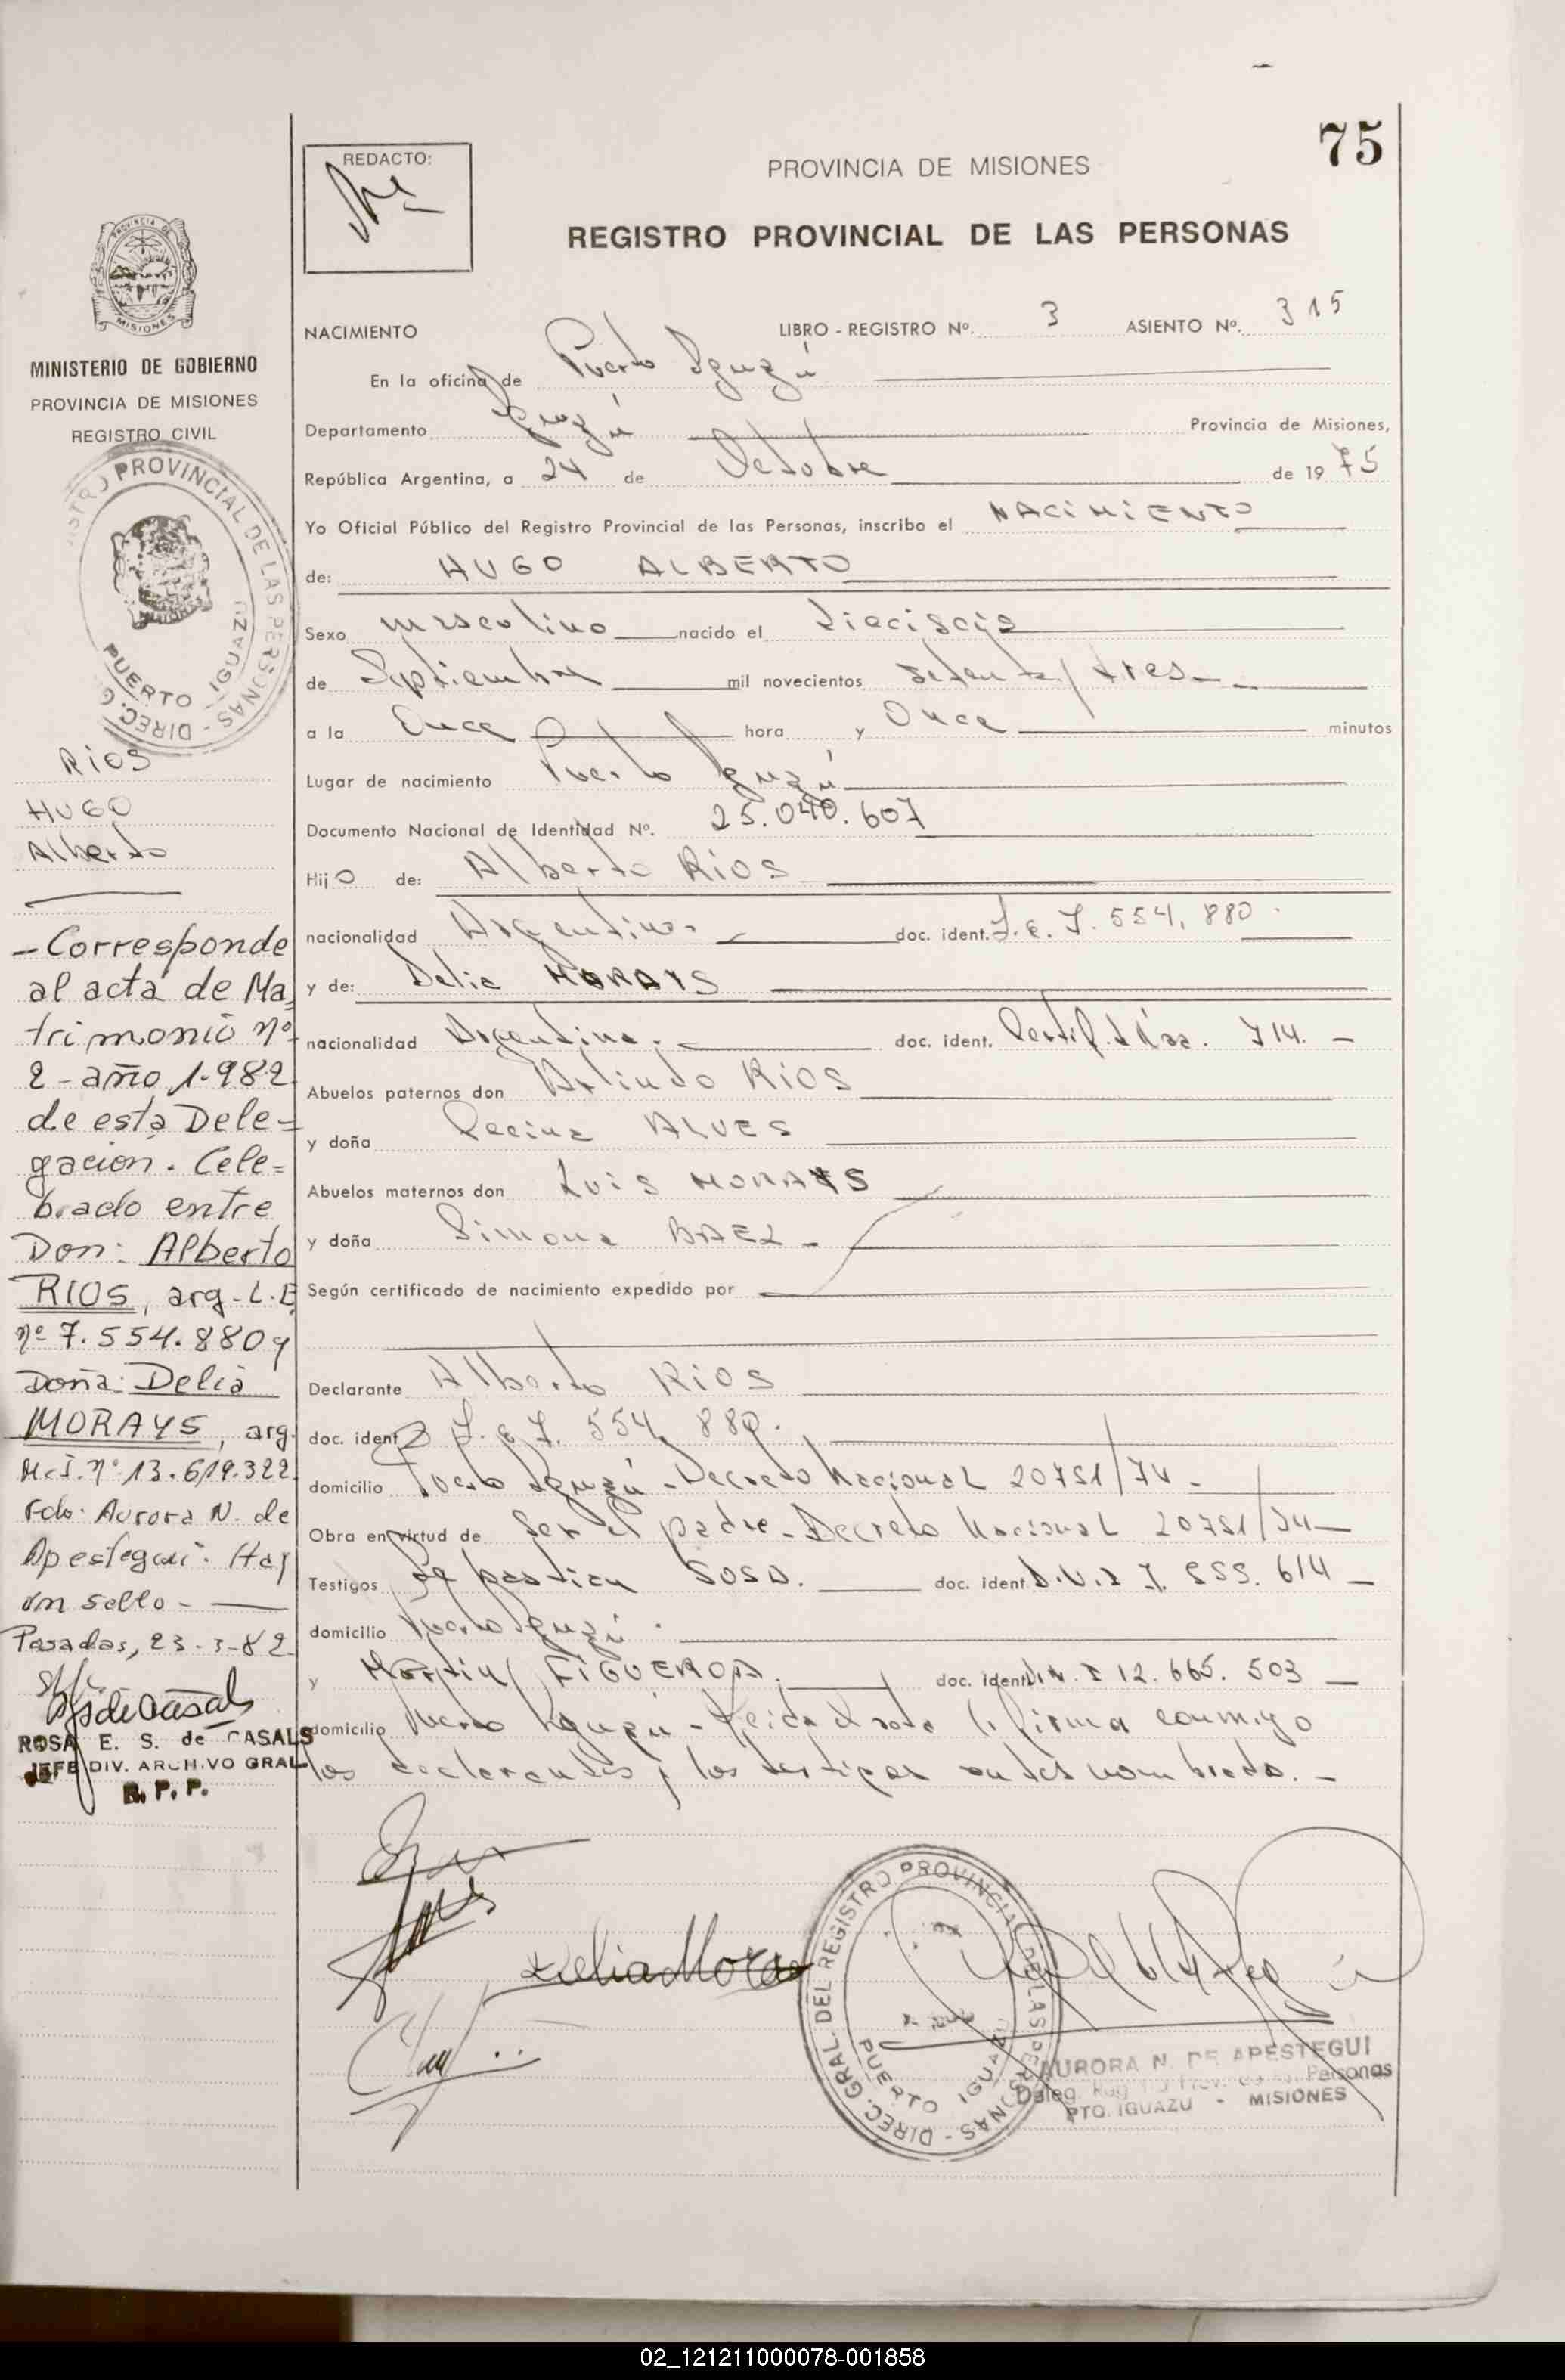 75
REDACTO:
PROVINCIA DE MISIONES
REGISTRO PROVINCIAL DE LAS PERSONAS
NACIMIENTO LIBRO - REGISTRO Nº. 3 ASIENTO Nº. 315
En la oficina de Puerto Iguazú
Departamento Iguazú Provincia de Misiones,
República Argentina, a 24 de Octubre de 1975
Yo Oficial Público del Registro Provincial de las Personas, inscribo el NACIMIENTO
de: HUGO ALBERTO
Sexo masculino nacido el dieciseis
de Septiembre mil novecientos setenta y tres
a la Once hora y Once minutos
Lugar de nacimiento Puerto Iguazú
Documento Nacional de Identidad Nº. 25.040.607
Hijo de: Alberto RIOS
nacionalidad Argentina. doc. ident. L.E. 7.554.880.
y de: Delia MORAYS
nacionalidad Argentina. doc. ident. Certif. 714. -
Abuelos paternos don Arlindo RIOS
y doña ALVES
Abuelos maternos don Luis MORAYS
y doña Simona BAEZ -
Según certificado de nacimiento expedido por
Declarante Alberto RIOS
doc. ident. 7.554.880.
domicilio Puerto Iguazú - Decreto Nacional 20751/74 -
Obra en virtud de Ser el padre - Decreto Nacional 20751/74 -
Testigos Sebastian SOSA. doc. ident. D.N.I 614 -
domicilio Puerto Iguazú.
y FIGUEROA. doc. ident. D.N.I 12.665.503 -
domicilio Puerto Iguazú - Leida el acta la firma conmigo
los declarantes y los testigos antes nombrados. -
Delia Morais
DIREC. GRAL. DEL REGISTRO PROVINCIAL DE LAS PERSONAS - PUERTO IGUAZU
AURORA N. DE APESTEGUI
Deleg. Personas
PTO. IGUAZU - MISIONES
MISIONES
MINISTERIO DE GOBIERNO
PROVINCIA DE MISIONES
REGISTRO CIVIL
PROVINCIAL DE LAS PERSONAS - DIREC. G
PUERTO IGUAZU
RIOS
HUGO
Alberto
- Corresponde
al acta de Ma
trimonio nº
2 - año 1.982
de esta Dele=
gación. Cele=
brado entre
Don: Alberto
RIOS, arg - L.E
nº 7.554.880 y
Doña: Delia
MORAYS, arg.
M.I. nº 13.619.322
Fdo: Aurora N. de
Apestegui. Hay
un sello -
Posadas, 23-3-82
ROSA E. S. de CASALS
JEFE DIV. ARCHIVO GRAL
R. P. P.
02_121211000078-001858